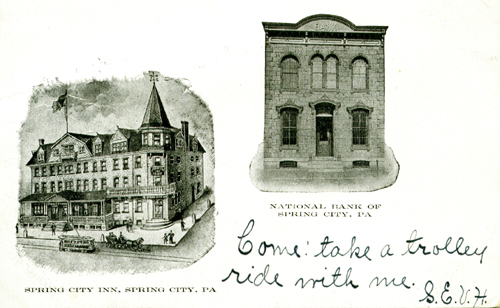 NATIONAL BANK OF
SPRING CITY, PA
SPRING CITY INN, SPRING CITY, PA
Come! take a trolley
ride with me.
S.E.V.H.